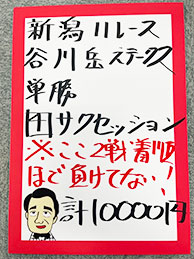 新潟11レース
谷川岳ステークス
単勝
田サクセッション
※ここ2戦着順
ほど負けてない!
計10000円